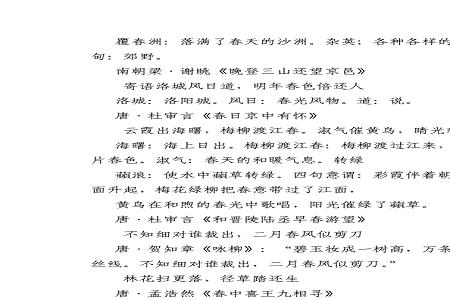 覆春洲：落满了春天的沙洲。杂英：各种各样的
甸：郊野。
南朝梁·谢眺《晚登三山还望京邑》
寄语洛城风日道，明年春色倍还人
洛城：洛阳城。风日：春光风物。道：说。
唐·杜审言《春日京中有怀》
云霞出海曙，梅柳渡江春。淑气催黄鸟，晴光
海曙：海上日出。梅柳渡江春：梅柳渡过江来，
片春色。淑气：春天的和暖气息。转绿
蘋浪：使水中蘋草转绿。四句意谓：彩霞伴着朝
面升起，梅花绿柳把春意带过了江面，
黄鸟在和煦的春光中歌唱，阳光催绿了蘋草。
唐·杜审言《和晋陵陆丞早春游望》
不知细对谁裁出，二月春风似剪刀
唐·贺知章《咏柳》：“碧玉妆成一树高，万条
丝线。不知细对谁裁出，二月春风似剪刀。”
林花扫更落，径草踏还生
唐·孟浩然《春中喜王九相寻》